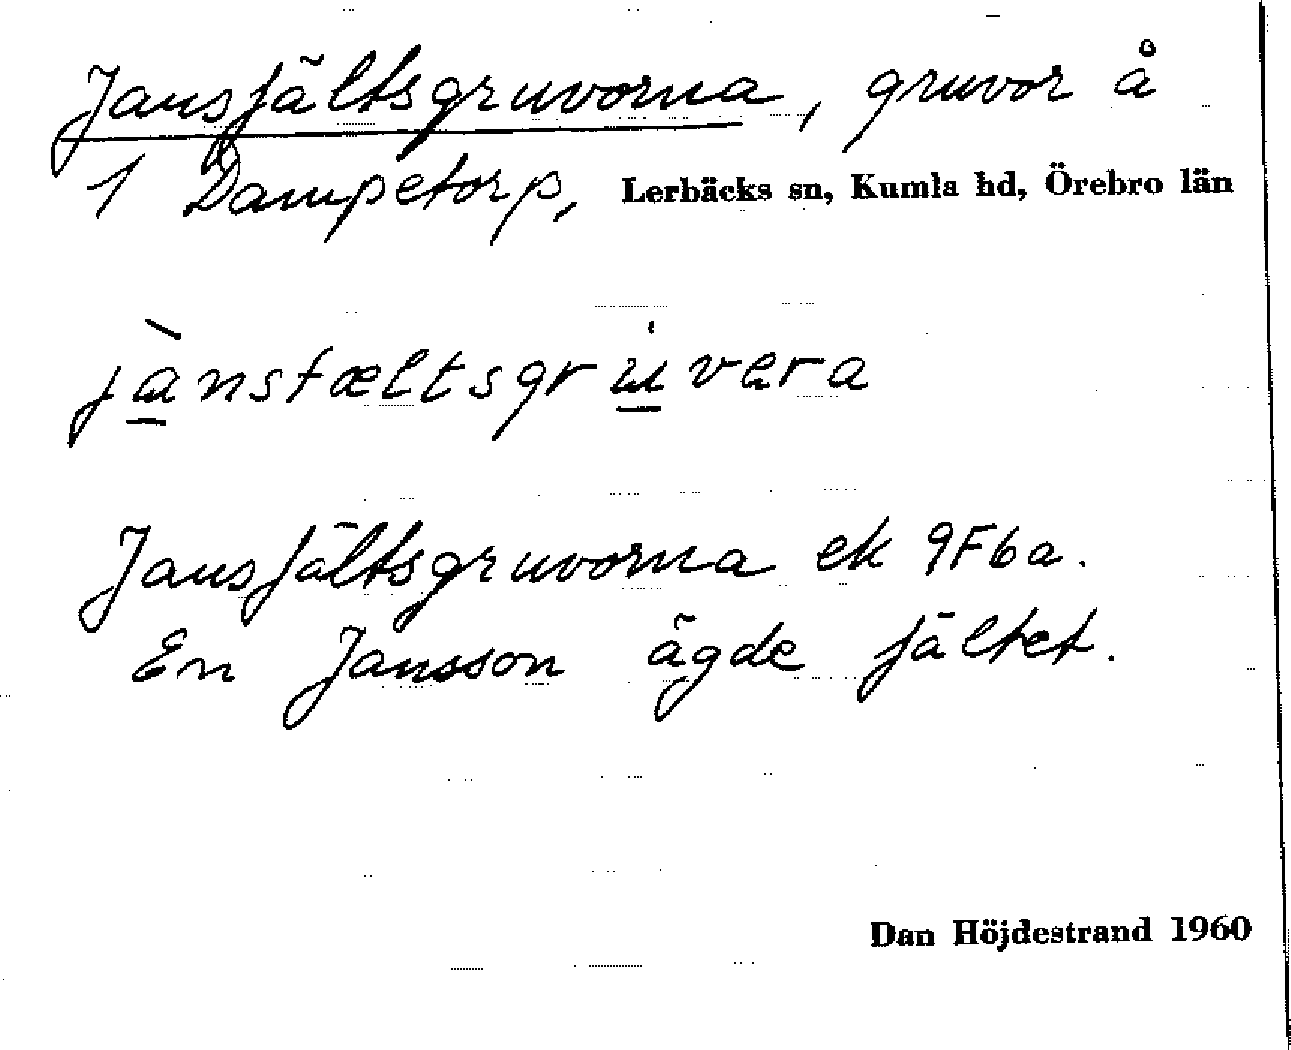 Jansfältsgruvorna, gruvor å
1 Dampetorp, Lerbäcks sn, Kumla hd, Örebro län
jànsfæltsgrùvera
Jansfältsgruvorna ek 9F6a.
En Jansson ägde fältet.
Dan Höjdestrand 1960